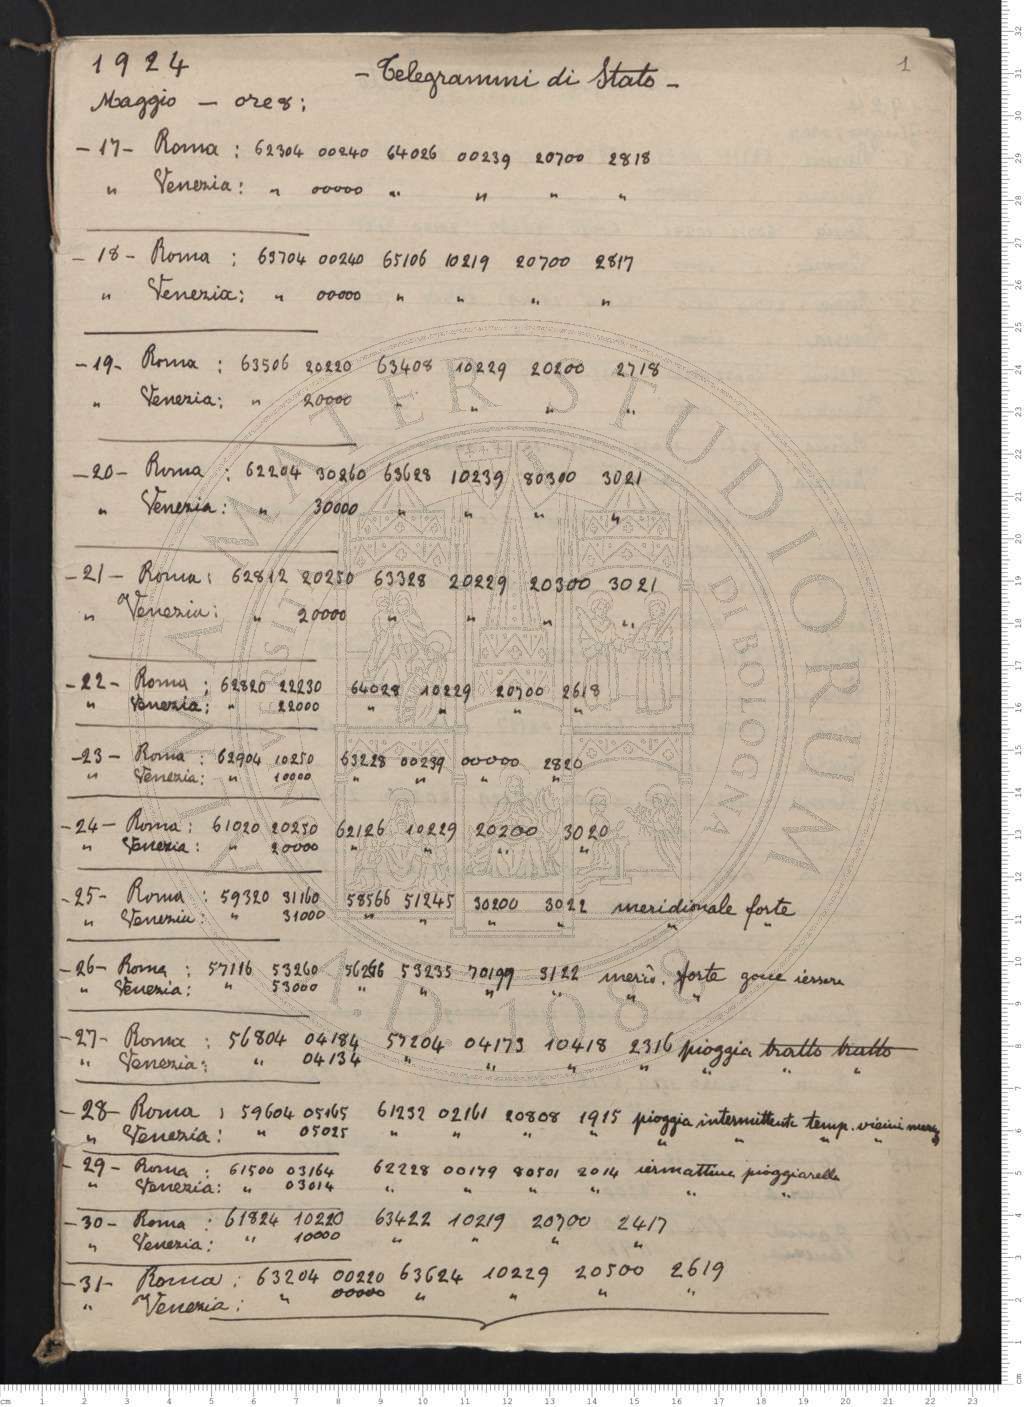 1
1924
- Telegrammi di Stato -
Maggio - ore 8:
- 17 - Roma : 62304 00240 64026 00239 20700 2818
" Venezia : " 00000 " " " "
- 18 - Roma : 63704 00240 65106 10219 20700 2817
" Venezia : " 00000 " " " "
- 19 - Roma : 63506 20220 63408 10229 20200 2718
" Venezia : " 20000 " " " "
- 20 - Roma : 62204 30260 63628 10239 80300 3021
" Venezia : " 30000 " " " "
- 21 - Roma : 62812 20250 63328 20229 20300 3021
" Venezia : " 20000 " " " "
- 22 - Roma : 62820 22230 64028 10229 20700 2618
" Venezia : " 22000 " " " "
- 23 - Roma : 62904 10250 63228 00239 00000 2820
" Venezia : " 10000 " " " "
- 24 - Roma : 61020 20250 62126 10229 20200 3020
" Venezia : " 20000 " " " "
- 25 - Roma : 59320 31160 58566 51245 30200 3022 meridionale forte
" Venezia : " 31000 " " " " " "
- 26 - Roma : 57116 53260 56266 53235 70199 3122 merid. forte gocce iersera
" Venezia : " 53000 " " " " " "
- 27 - Roma : 56804 04184 57204 04173 10418 2316 pioggia tratto tratto
" Venezia : " 04134 " " " " " " "
- 28 - Roma : 59604 05165 61232 02161 20808 1915 pioggia intermittente temp. vicini
" Venezia : " 05025 " " " " " " " "
- 29 - Roma : 61500 03164 62228 00179 80501 2014 iermattina pioggiarella
" Venezia : " 03014 " " " " " "
- 30 - Roma : 61824 10220 63422 10219 20700 2417
" Venezia : " 10000 " " " "
- 31 - Roma : 63204 00220 63624 10229 20500 2619
" Venezia : " 00000 " " " "
ALMA MATER STUDIORUM
UNIVERSITÀ DI BOLOGNA
A.D. 1088